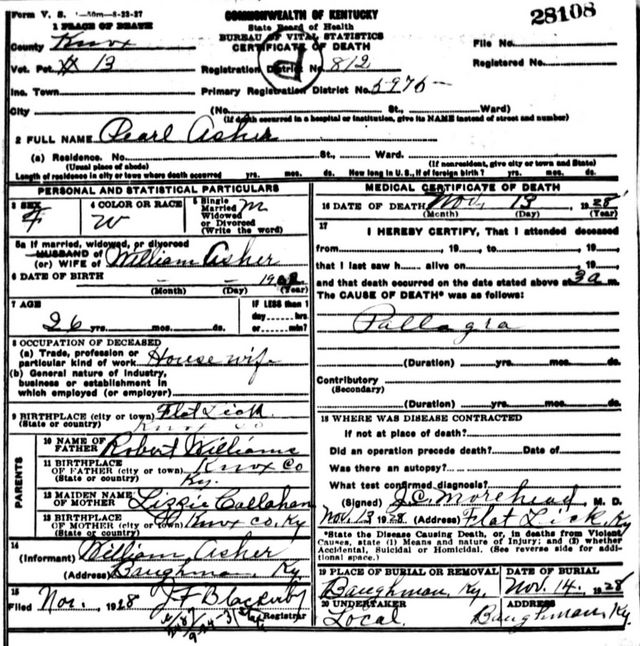 Form V. S. 1-50m-8-23-27
COMMONWEALTH OF KENTUCKY
28108
1 PLACE OF DEATH
State Board of Health
BUREAU OF VITAL STATISTICS
CERTIFICATE OF DEATH
County Knox
File No.
Vot. Pct. 13
Registration District No. 812
Registered No.
Inc. Town
Primary Registration District No. 5975
City (No. St., Ward)
(If death occurred in a hospital or institution, give its NAME instead of street and number)
2 FULL NAME Pearl Asher
(a) Residence. No. St., Ward.
(Usual place of abode) (If nonresident, give city or town and State)
Length of residence in city or town where death occurred yrs. mos. ds. How long in U.S., if of foreign birth? yrs. mos. ds.
PERSONAL AND STATISTICAL PARTICULARS
3 SEX F
4 COLOR OR RACE W
5 Single Married Widowed or Divorced (Write the word) M
5a If married, widowed, or divorced
HUSBAND OF
(or) WIFE OF William Asher
6 DATE OF BIRTH 190
(Month) (Day) (Year)
7 AGE 26 yrs. mos. ds.
IF LESS than 1 day hrs. or min?
8 OCCUPATION OF DECEASED
(a) Trade, profession or particular kind of work House wife
(b) General nature of industry, business or establishment in which employed (or employer)
9 BIRTHPLACE (city or town) Flat Lick
(State or country) Knox Co
PARENTS
10 NAME OF FATHER Robert Williams
11 BIRTHPLACE OF FATHER (city or town) Knox Co
(State or country) Ky.
12 MAIDEN NAME OF MOTHER Lizzie Callahan
13 BIRTHPLACE OF MOTHER (city or town) Knox Co. Ky
(State or country)
14
(Informant) William Asher
(Address) Baughman, Ky
15
Filed Nov. 1928 J F Blackerby
Registrar
MEDICAL CERTIFICATE OF DEATH
16 DATE OF DEATH Nov. 13 1928
(Month) (Day) (Year)
17
I HEREBY CERTIFY, That I attended deceased
from, 19, to, 19,
that I last saw h alive on, 19,
and that death occurred on the date stated above at 3 a m.
The CAUSE OF DEATH* was as follows:
Pallagra
(Duration) yrs. mos. ds.
Contributory
(Secondary)
(Duration) yrs. mos. ds.
18 WHERE WAS DISEASE CONTRACTED
If not at place of death?
Did an operation precede death? Date of
Was there an autopsy?
What test confirmed diagnosis?
(Signed) J.C. Morehead, M. D.
Nov. 13 1928 (Address) Flat Lick, Ky
*State the Disease Causing Death, or, in deaths from Violent
Causes, state (1) Means and nature of Injury; and (2) whether
Accidental, Suicidal or Homicidal. (See reverse side for addi-
tional space.)
19 PLACE OF BURIAL OR REMOVAL
Baughman, Ky.
DATE OF BURIAL
Nov. 14. 1928
20 UNDERTAKER
Local.
ADDRESS
Baughman, Ky.